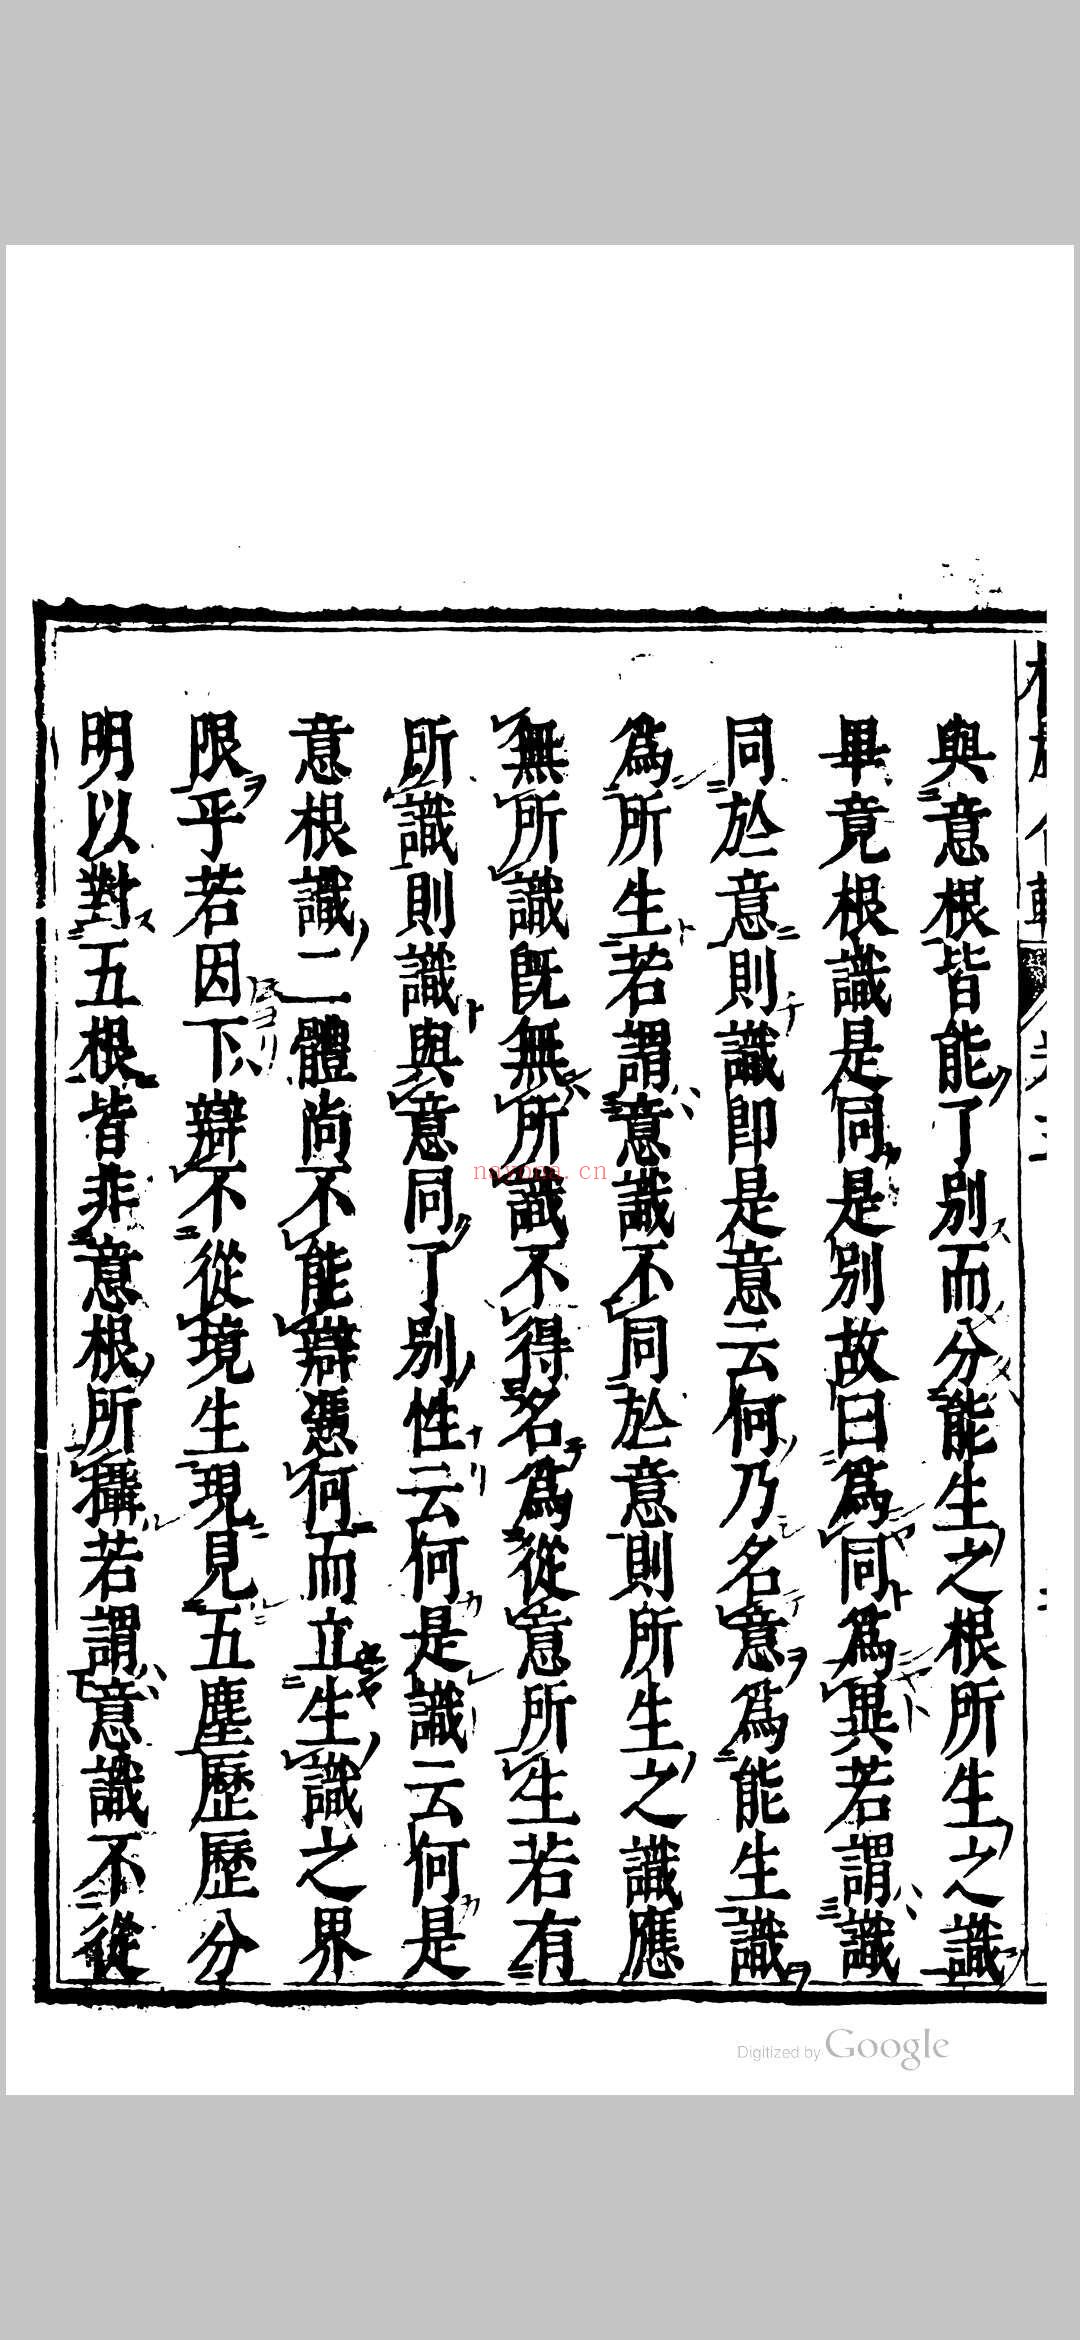 與意根皆能了別而分能生之根所生之識
畢竟根識是同是別故曰為同為異若謂識
同於意則識即是意云何乃名意為能生識
為所生若謂意識不同於意則所生之識應
無所識既無所識不得名為從意所生若有
所識則識與意同了別性云何是識云何是
意根識二體尚不能辯憑何而立生識之界
限乎若因下辯不從境生現見五塵歷歷分
明以對五根皆非意根所攝若謂意識不從
nayona.cn
Digitized by Google